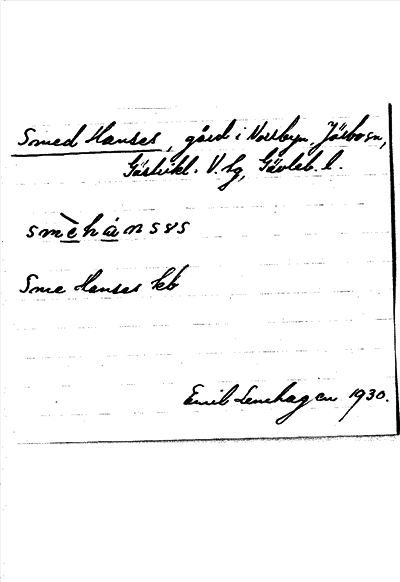 Smed Hanses, gård i Norrbyn. Järbo sn,
Gästrikl. V. hg, Gävleb. l.
smèhánsəs
Sme Hanses kb
Emil Lenhagen 1930.